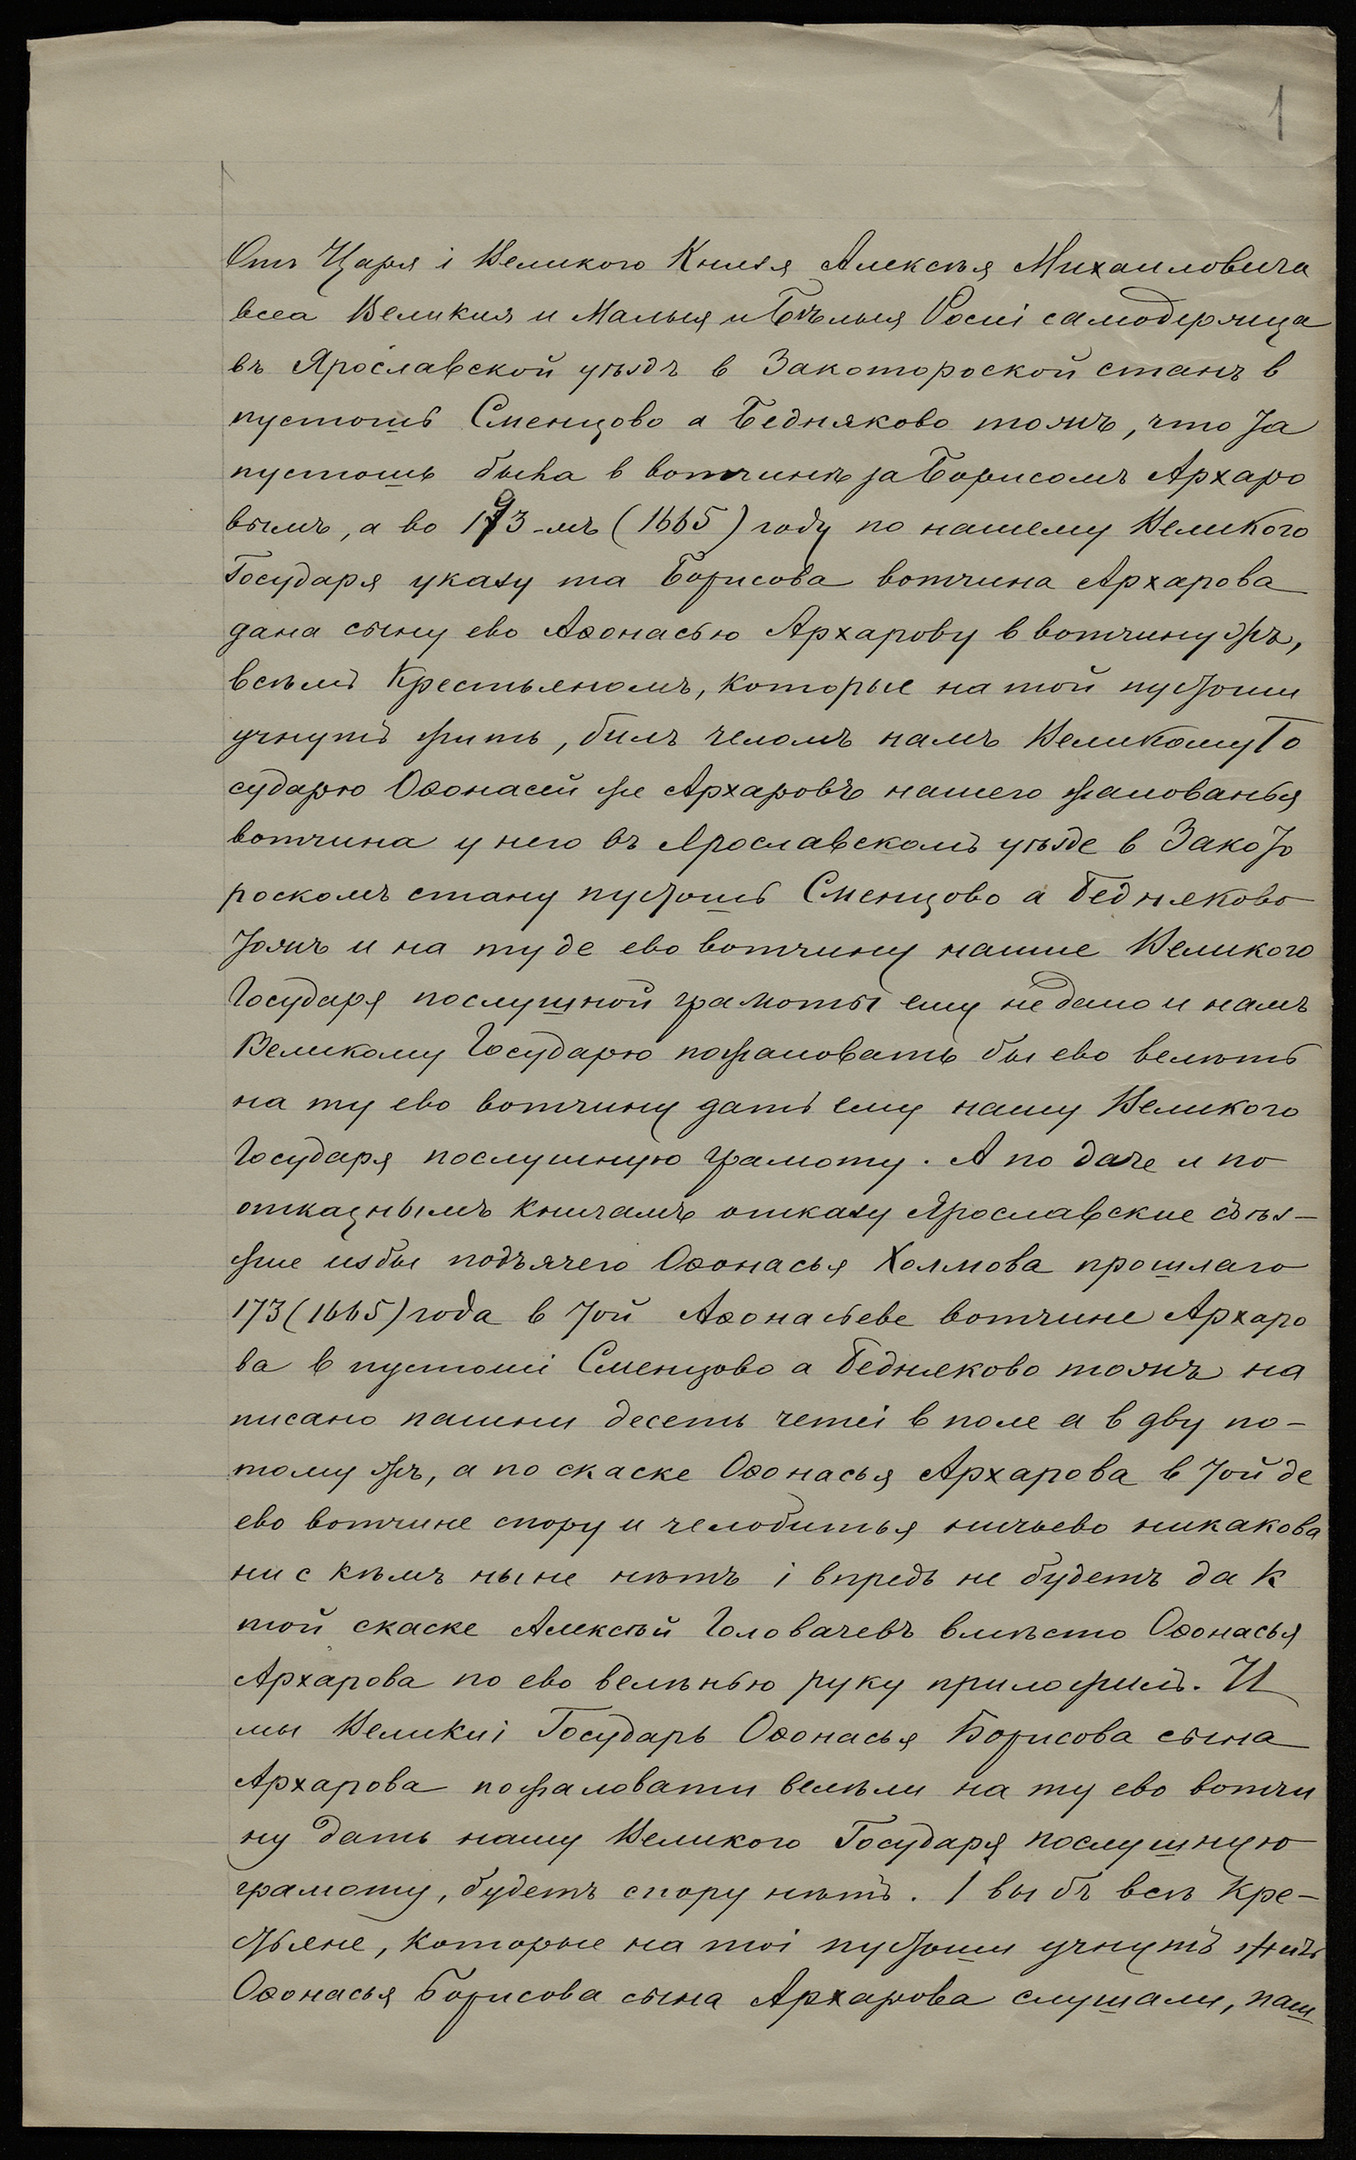 1
Отъ Царя і Великого Князя Алексѣя Михаиловича
всеа Великия и Малыя и Бѣлыя Росиі самодержца
въ Ярославской уѣздъ в Закотороской станъ в
пустошь Сменцово а Бедняково тожъ, что та
пустошь была в вотчинѣ за Борисомъ Архаро
вымъ, а во 173-мъ (1665) году по нашему Великого
Государя указу та Борисова вотчина Архарова
дана сыну ево Аѳонасью Архарову в вотчину жъ,
всѣмъ Крестьяномъ, которые на той пустоши
учнутъ жить, билъ челомъ намъ Великому Го
сударю Оѳонасей же Архаровъ нашего жалованья
вотчина у него въ Ярославскомъ уѣзде в Закото
роскомъ стану пустошь Сменцово а Бедняково
тожъ и на ту де ево вотчину нашие Великого
Государя послушной грамоты ему не дано и намъ
Великому Государю пожаловать бы ево велѣть
на ту ево вотчину дать ему нашу Великого
Государя послушную грамоту. А по даче и по
отказнымъ книгамъ отказу Ярославские съѣз-
жие избы подъячего Оѳонасья Холмова прошлаго
173 (1665) года в той Аѳонасьеве вотчине Архаро
ва в пустоші Сменцово а Бедняково тожъ на
писано пашни десеть четеі в поле а в дву по-
тому жъ, а по скаске Оѳонасья Архарова в той де
ево вотчине спору и челобитья ничьево никакова
ни с кѣмъ ныне нѣтъ і впредь не будетъ да к
той скаске Алексѣй Головачевъ вмѣсто Оѳонасья
Архарова по ево велѣнью руку приложилъ. И
мы Великиі Государь Оѳонасья Борисова сына
Архарова пожаловати велѣли на ту ево вотчи
ну дать нашу Великого Государя послушную
грамоту, будетъ спору нѣтъ. І вы бъ всѣ Кре-
стьяне, которые на тоі пустоши учнутъ жить
Оѳонасья Борисова сына Архарова слушали, паш